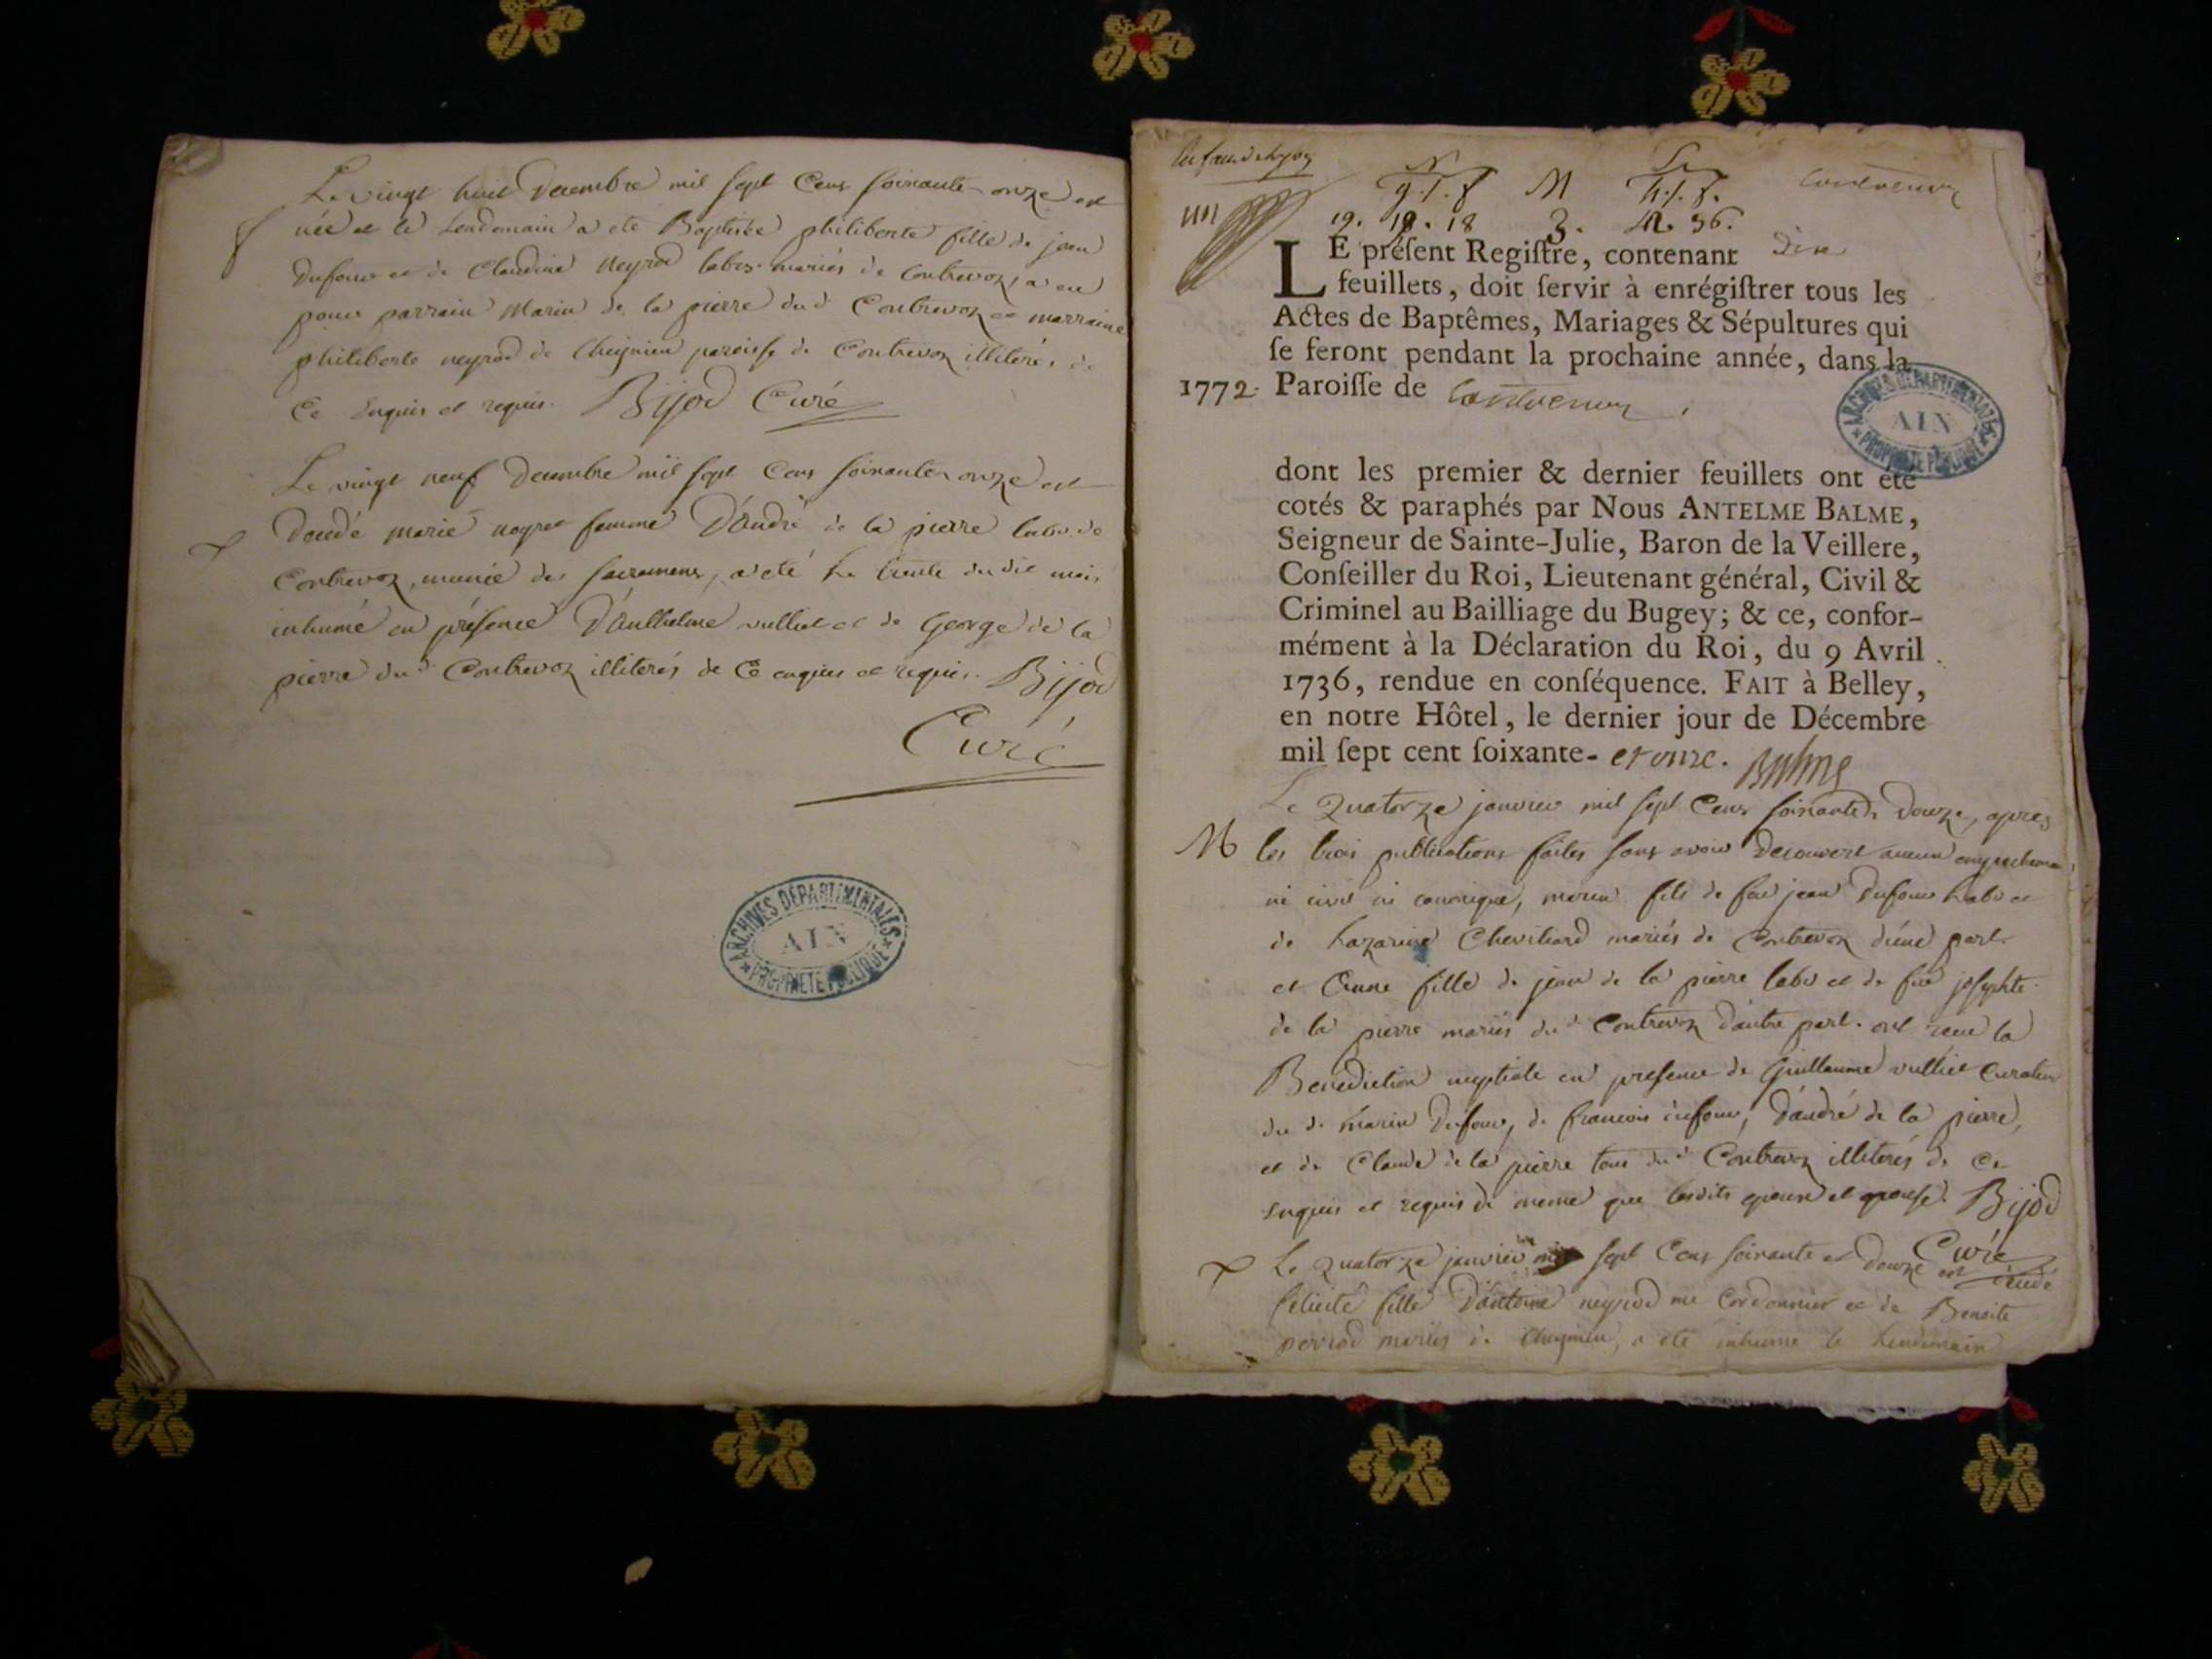 Le vingt huit Decembre mil sept Cens soixante onze est
née et le Lendemain a ete Baptisée philiberte fille de jean
Dufour et de Claudine neyrod labor. mariés de Contrevoz, a eu
pour parrain Marin de la pierre dud. Contrevoz et marraine
philiberte neyrod de Cheignieu paroisse de Contrevoz illiterés de
Ce Enquis et requis. Bijod Curé
Le vingt neuf Decembre mil sept Cens soixante onze est
Decedé marie neyret femme D'André de la pierre labo. de
Contrevoz, munie des sacremens, a été le trente dudit mois
inhumé en présence D'Anthelme vulliet et de George de la
pierre dud. Contrevoz illiterés de Ce enquis et requis. Bijod
Curé
ARCHIVES DÉPARTEMENTALES
AIN
PROPRIÉTÉ PUBLIQUE
N M
9. 1. 8
19. 18 3. 36.
LE préſent Regiſtre, contenant Dix
feuillets, doit ſervir à enrégiſtrer tous les
Actes de Baptêmes, Mariages & Sépultures qui
ſe feront pendant la prochaine année, dans la
1772. Paroiſſe de Contrevoz
ARCHIVES DÉPARTEMENTALES
AIN
PROPRIÉTÉ PUBLIQUE
dont les premier & dernier feuillets ont été
cotés & paraphés par Nous ANTELME BALME,
Seigneur de Sainte-Julie, Baron de la Veillere,
Conſeiller du Roi, Lieutenant général, Civil &
Criminel au Bailliage du Bugey; & ce, confor-
mément à la Déclaration du Roi, du 9 Avril
1736, rendue en conſéquence. FAIT à Belley,
en notre Hôtel, le dernier jour de Décembre
mil ſept cent ſoixante- et onze. Balme
Le Quatorze janvier mil sept Cens soixante Douze, apres
M les trois publications faites sans avoir Decouvert aucun empechement
ni civil ni canonique, marin fils de feu jean Dufour labo et
de Lazarine Chevillard mariés de Contrevoz d'une part
et Anne fille de jean de la pierre labo et de feue josephte
de la pierre mariés dud. Contrevoz d'autre part. ont recu la
Benediction nuptiale en presence de Guillaume vulliet Curateur
du d. marin Dufour, de francois dufour, D'andré de la pierre,
et de Claude de la pierre tous dud. Contrevoz illiterés de Ce
Enquis et requis de meme que lesdits epoux et epouse. Bijod
Curé
Le Quatorze janvier mil sept Cens soixante et douze est decedé
felicité fille D'antoine neyrod me Cordonnier et de Benoite
perrod mariés de Cheignieu, a eté inhume le Lendemain